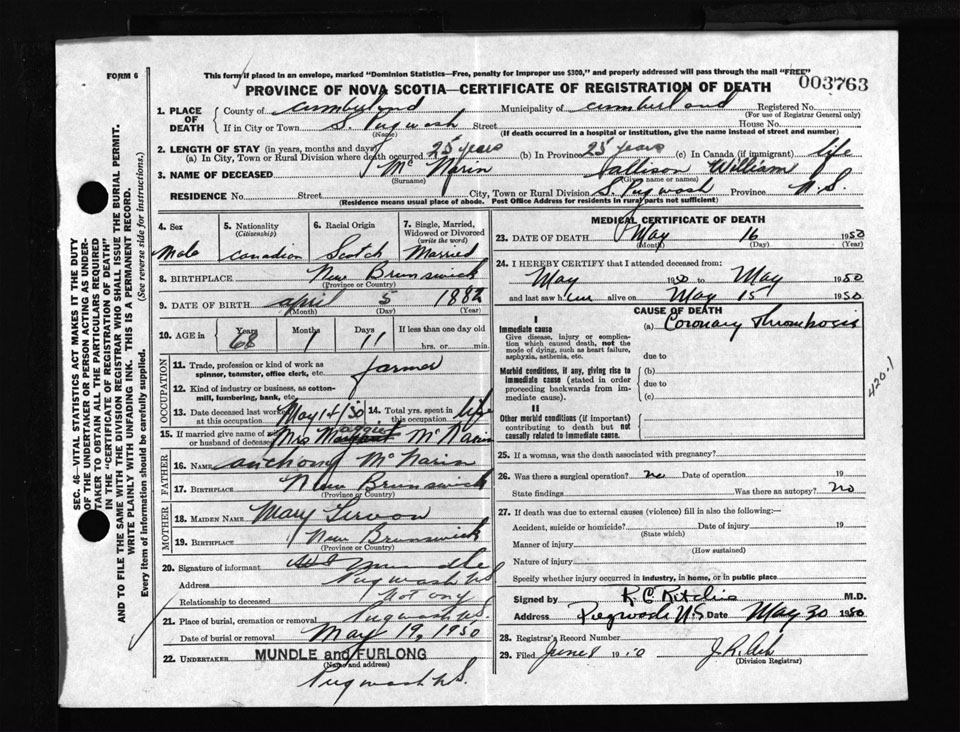 FORM 6
This form if placed in an envelope, marked "Dominion Statistics—Free, penalty for improper use $300," and properly addressed will pass through the mail "FREE"
PROVINCE OF NOVA SCOTIA—CERTIFICATE OF REGISTRATION OF DEATH
003763
1. PLACE OF DEATH County of Cumberland Municipality of Cumberland Registered No.
(For use of Registrar General only)
If in City or Town S. Pugwash Street House No.
(Name) (If death occurred in a hospital or institution, give the name instead of street and number)
2. LENGTH OF STAY (in years, months and days)
(a) In City, Town or Rural Division where death occurred 25 years (b) In Province 25 years (c) In Canada (if immigrant) life
3. NAME OF DECEASED Mc Narin William
(Surname) (Given name or names)
RESIDENCE No. Street City, Town or Rural Division S. Pugwash Province N.S.
(Residence means usual place of abode. Post Office Address for residents in rural parts not sufficient)
4. Sex Male
5. Nationality (Citizenship) Canadian
6. Racial Origin Scotch
7. Single, Married, Widowed or Divorced (write the word) Married
8. BIRTHPLACE New Brunswick
(Province or Country)
9. DATE OF BIRTH April 5 1882
(Month) (Day) (Year)
10. AGE Years 68 Months 1 Days 11 If less than one day old hrs. or min.
OCCUPATION
11. Trade, profession or kind of work as spinner, teamster, office clerk, etc. farmer
12. Kind of industry or business, as cotton-mill, lumbering, bank, etc.
13. Date deceased last worked at this occupation May 14/50 14. Total yrs. spent in this occupation life
15. If married give name of wife or husband of deceased Mrs Mc Narin
FATHER
16. NAME Anthony Mc Narin
17. BIRTHPLACE New Brunswick
(Province or Country)
MOTHER
18. MAIDEN NAME Mary
19. BIRTHPLACE New Brunswick
(Province or Country)
20. Signature of informant
Address Pugwash NS
Relationship to deceased not any
21. Place of burial, cremation or removal Pugwash NS.
Date of burial or removal May 19, 1950
22. UNDERTAKER MUNDLE and FURLONG
(Name and address)
Pugwash NS.
MEDICAL CERTIFICATE OF DEATH
23. DATE OF DEATH May 16 1950
(Month) (Day) (Year)
24. I HEREBY CERTIFY that I attended deceased from:
May 1950 to May 1950
and last saw him alive on May 15 1950
CAUSE OF DEATH
I
Immediate cause (a) Coronary Thrombosis
Give disease, injury or complication which caused death, not the mode of dying, such as heart failure, asphyxia, asthenia, etc.
due to
Morbid conditions, if any, giving rise to immediate cause (stated in order proceeding backwards from immediate cause). (b)
due to
(c)
II
Other morbid conditions (if important) contributing to death but not causally related to immediate cause.
420.1
25. If a woman, was the death associated with pregnancy?
26. Was there a surgical operation? no Date of operation 19
State findings Was there an autopsy? no
27. If death was due to external causes (violence) fill in also the following:
Accident, suicide or homicide? Date of injury 19
(State which)
Manner of injury
(How sustained)
Nature of injury
Specify whether injury occurred in industry, in home, or in public place
Signed by M.D.
Address Pugwash N.S Date May 30 1950
28. Registrar's Record Number
29. Filed June 8 19
(Division Registrar)
SEC. 46—VITAL STATISTICS ACT MAKES IT THE DUTY
OF THE UNDERTAKER OR PERSON ACTING AS UNDER-
TAKER TO OBTAIN ALL THE PARTICULARS REQUIRED
IN THE "CERTIFICATE OF REGISTRATION OF DEATH"
AND TO FILE THE SAME WITH THE DIVISION REGISTRAR WHO SHALL ISSUE THE BURIAL PERMIT.
WRITE PLAINLY WITH UNFADING INK. THIS IS A PERMANENT RECORD.
Every item of information should be carefully supplied. (See reverse side for instructions.)